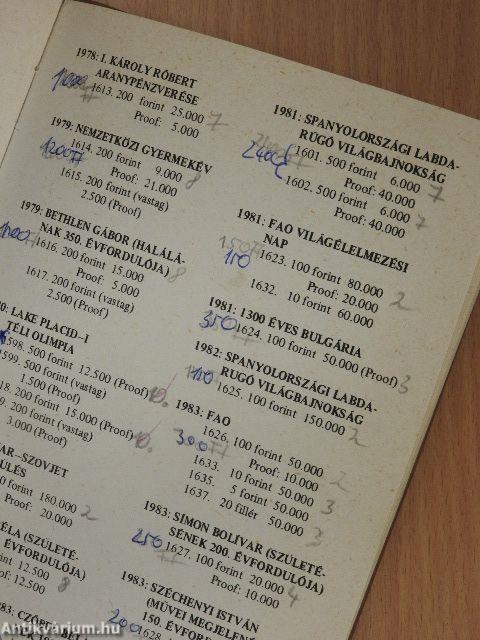 1978: I. KÁROLY RÓBERT
ARANYPÉNZVERÉSE
1613. 200 forint 25.000
Proof: 5.000
7
1979: NEMZETKÖZI GYERMEKÉV
1200 Ft
1614. 200 forint 9.000
Proof: 21.000
8
1615. 200 forint (vastag)
2.500 (Proof)
1979: BETHLEN GÁBOR (HALÁLÁ-
NAK 350. ÉVFORDULÓJA)
1616. 200 forint 15.000
8
Proof: 5.000
1617. 200 forint (vastag)
2.500 (Proof)
LAKE PLACID–I
TÉLI OLIMPIA
1598. 500 forint 12.500 (Proof)
10.
1599. 500 forint (vastag)
1.500 (Proof)
18. 200 forint 15.000 (Proof)
10.
9. 200 forint (vastag)
3.000 (Proof)
AR–SZOVJET
ÜLÉS
forint 180.000
2
Proof: 20.000
ÉLA (SZÜLETÉ-
ÉVFORDULÓJA)
nt 12.500
8
of: 12.500
983: CZÓBEL BÉLA
1981: SPANYOLORSZÁGI LABDA-
RÚGÓ VILÁGBAJNOKSÁG
2400
1601. 500 forint 6.000
7
Proof: 40.000
1602. 500 forint 6.000
7
Proof: 40.000
1981: FAO VILÁGÉLELMEZÉSI
NAP
150 Ft
150
1623. 100 forint 80.000
2
Proof: 20.000
1632. 10 forint 60.000
1981: 1300 ÉVES BULGÁRIA
350
1624. 100 forint 50.000 (Proof)
3
1982: SPANYOLORSZÁGI LABDA-
RÚGÓ VILÁGBAJNOKSÁG
110
1625. 100 forint 150.000
2
1983: FAO
300 Ft
1626. 100 forint 50.000
2
Proof: 10.000
1633. 10 forint 50.000
1635. 5 forint 50.000
3
1637. 20 fillér 50.000
3
1983: SIMON BOLÍVAR (SZÜLETÉ-
SÉNEK 200. ÉVFORDULÓJA)
250
1627. 100 forint 20.000
4
Proof: 10.000
1983: SZÉCHENYI ISTVÁN
(MŰVEI MEGJELENÉ
150. ÉVFORDU
200
1628.
Antikvárium.hu